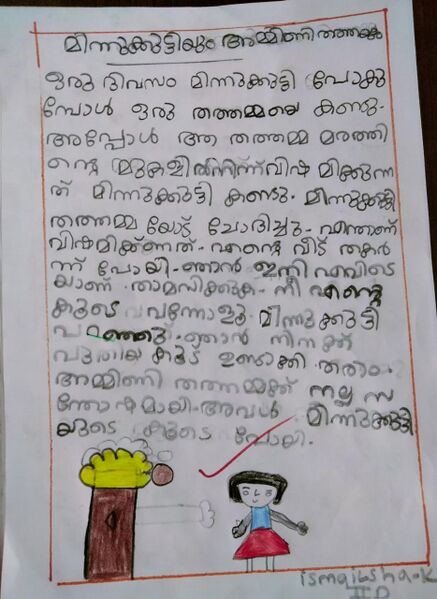 മിന്നുക്കുട്ടിയും അമ്മിണി തത്തയും
ഒരു ദിവസം മിന്നുക്കുട്ടി പോകു
മ്പോൾ ഒരു തത്തമ്മയെ കണ്ടു.
അപ്പോൾ ആ തത്തമ്മ മരത്തി
ന്റെ മുകളിൽനിന്ന് വിഷമിക്കുന്ന
ത് മിന്നുക്കുട്ടി കണ്ടു. മിന്നുക്കുട്ടി
തത്തമ്മയോട് ചോദിച്ചു. എന്താണ്
വിഷമിക്ണത്. എന്റെ വീട് തകർ
ന്ന് പോയി. ഞാൻ ഇനി എവിടെ
യാണ് താമസിക്കുക. നീ എന്റെ
കൂടെ വന്നോളൂ. മിന്നുക്കുട്ടി
പറഞ്ഞു. ഞാൻ നിനക്ക്
പുതിയ കൂട് ഉണ്ടാക്കി തരാം.
അമ്മിണി തത്തമ്മക്ക് നല്ല സ
ന്തോഷമായി. അവൾ മിന്നുക്കുട്ടി
യുടെ കൂടെ പോയി.
ismailishaak
II D